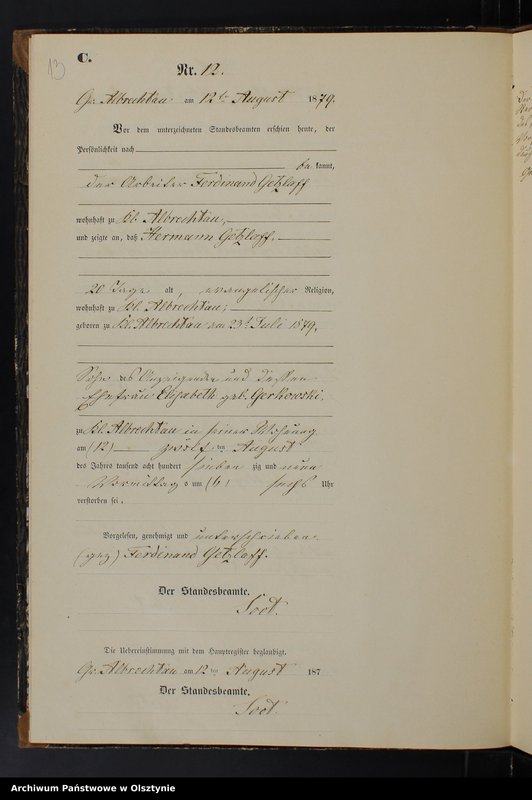 13
C.
Nr. 12.
Gr. Albrechtau am 12ten August 1879.
Vor dem unterzeichneten Standesbeamten erschien heute, der
Persönlichkeit nach
be kannt,
der Arbeiter Ferdinand Getzlaff
wohnhaft zu Kl. Albrechtau,
und zeigte an, daß Hermann Getzlaff,
20 Tage alt, evangelischer Religion,
wohnhaft zu Kl. Albrechtau,
geboren zu Kl. Albrechtau am 23t Juli 1879,
Sohn des Anzeigenden und dessen
Ehefrau Elisabeth geb. Gerkowski.
zu Kl. Albrechtau in seiner Wohnung
am (12) zwölf ten August
des Jahres tausend acht hundert sieben zig und neun
Vormittag s um (6) sechs Uhr
verstorben sei.
Vorgelesen, genehmigt und unterschrieben
(gez) Ferdinand Getzlaff.
Der Standesbeamte.
Die Uebereinstimmung mit dem Hauptregister beglaubigt.
Gr. Albrechtau am 12 ten August 187
Der Standesbeamte.
Archiwum Państwowe w Olsztynie